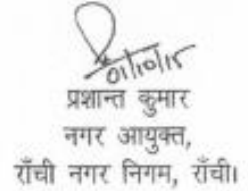 01/10/15
प्रशान्त कुमार
नगर आयुक्त,
राँची नगर निगम, राँची।